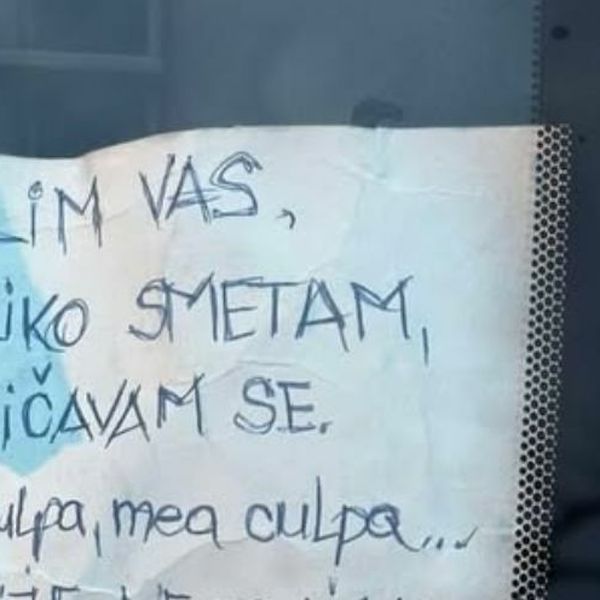 LiM VAS,
iKO SMETAM,
iČAVAM SE.
ulpa, mea culpa...